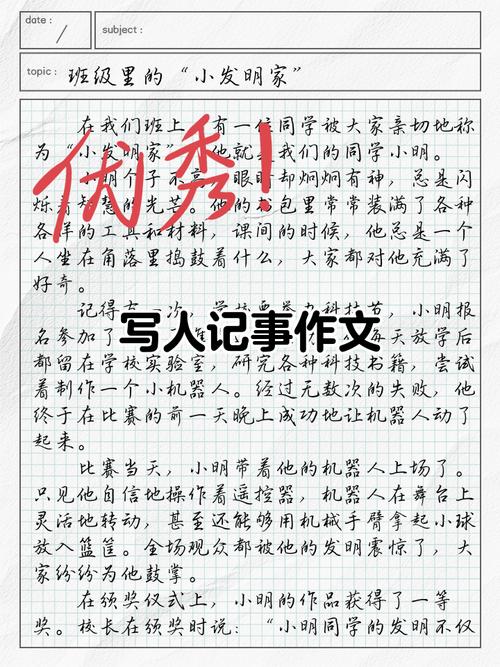 date :
subject :
topic : 班级里的“小发明家”
在我们班上，有一位同学被大家亲切地称
为“小发明家”，他就是我们的同学小明。
小明个子不高，眼睛却炯炯有神，总是闪
烁着智慧的光芒。他的书包里常常装满了各种
各样的工具和材料，课间的时候，他总是一个
人坐在角落里捣鼓着什么，大家都对他充满了
好奇。
优秀！
记得有一次，学校要举办科技节，小明报
名参加了 每天放学后
写人记事作文
都留在学校实验室，研究各种科技书籍，尝试
着制作一个小机器人。经过无数次的失败，他
终于在比赛的前一天晚上成功地让机器人动了
起来。
比赛当天，小明带着他的机器人上场了。
只见他自信地操作着遥控器，机器人在舞台上
灵活地转动，甚至还能够用机械手臂拿起小球
放入篮筐。全场观众都被他的发明震惊了，大
家纷纷为他鼓掌。
在颁奖仪式上，小明的作品获得了一等
奖。校长在颁奖时说：“小明同学的发明不仅